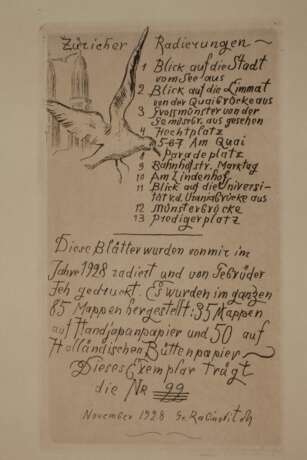 Züricher Radierungen ~
1 Blick auf die Stadt
vom See aus
2 Blick auf die Limmat
von der Quaibrücke aus
3 Fraumünster von der
Gemüsebr. aus gesehen
4 Hechtplatz
5-6-7 Am Quai
8 Paradeplatz
9 Bahnhofstr. Marktag
10 Am Lindenhof
11 Blick auf die Universi-
tät v.d. Uraniabrücke aus
12 Münsterbrücke
13 Predigerplatz
Diese Blätter wurden von mir im
Jahre 1928 radiert und von Gebrüder
Feh gedruckt. Es wurden im ganzen
85 Mappen hergestellt: 35 Mappen
auf Handjapanpapier und 50 auf
Holländischen Büttenpapier ~
Dieses Exemplar trägt
die Nr 99
November 1928 Gr. Rabinovitch